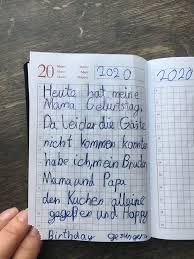 20 2020
Heute hat meine
Mama Geburtstag.
Da leider die Gäste
nicht kommen konnten
habe ich, mein Bruder
Mama und Papa
den Kuchen alleine
gegessen und Happy
Birthday gesungen
2020